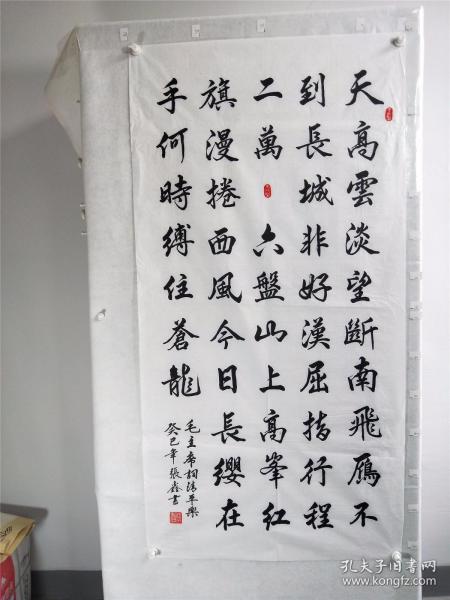 天高雲淡望斷南飛鴈不
到長城非好漢屈指行程
二萬 六盤山上高峯紅
旗漫捲西風今日長纓在
手何時縛住蒼龍
毛主席詞清平樂
癸巳年張鑫書
孔夫子旧书网
www.kongfz.com